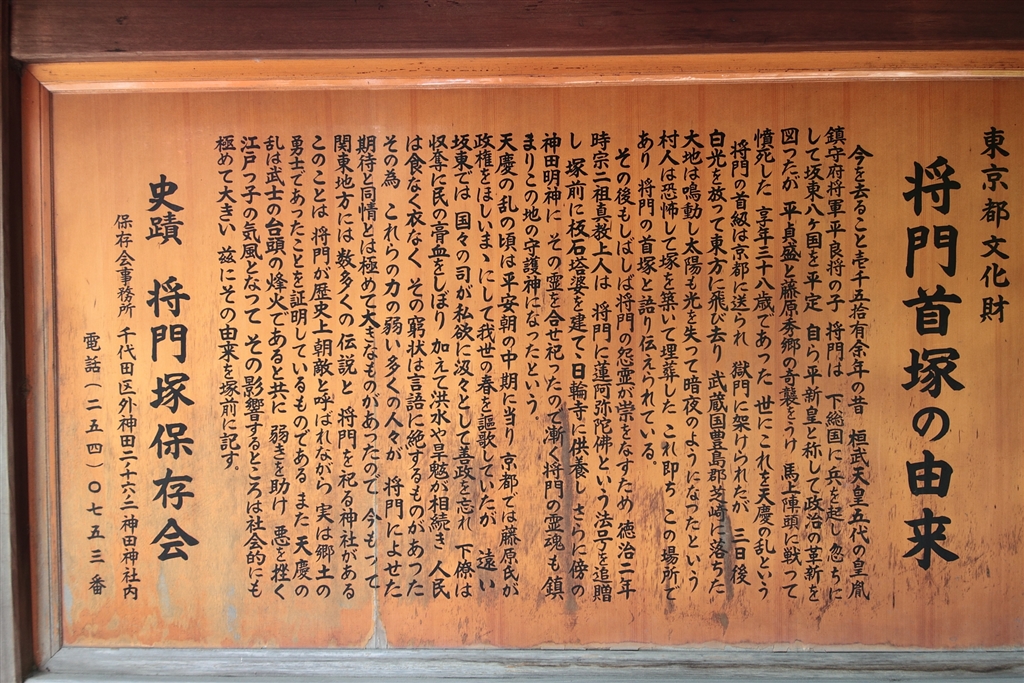 東京都文化財
将門首塚の由来
今を去ること壱千五拾有余年の昔 桓武天皇五代の皇胤
鎮守府将軍平良将の子 将門は 下総国に兵を起し 忽ちに
して坂東八ヶ国を平定 自ら平新皇と称して政治の革新を
図ったが 平貞盛と藤原秀郷の奇襲をうけ 馬上陣頭に戦って
憤死した 享年三十八歳であった 世にこれを天慶の乱という
将門の首級は京都に送られ 獄門に架けられたが 三日後
白光を放って東方に飛び去り 武蔵国豊島郡芝崎に落ちた
大地は鳴動し太陽も光を失って暗夜のようになったという
村人は恐怖して塚を築いて埋葬した これ即ち この場所で
あり 将門の首塚と語り伝えられている。
その後もしばしば将門の怨霊が祟をなすため 徳治二年
時宗二祖真教上人は 将門に蓮阿弥陀佛という法号を追贈
し 塚前に板石塔婆を建て 日輪寺に供養し さらに傍の
神田明神に その霊を合せ祀ったので 漸く将門の霊魂も鎮
まりこの地の守護神になったという
天慶の乱の頃は平安朝の中期に当り 京都では藤原氏が
政権をほしいまゝにして我世の春を謳歌していたが 遠い
坂東では 国々の司が私欲に汲々として善政を忘れ 下僚は
収奪に民の膏血をしぼり 加えて洪水や旱魃が相続き 人民
は食なく衣なく その窮状は言語に絶するものがあった
その為 これらの力の弱い多くの人々が 将門によせた
期待と同情とは極めて大きなものがあったので 今もって
関東地方には数多くの伝説と 将門を祀る神社がある
このことは 将門が歴史上朝敵と呼ばれながら 実は郷土の
勇士であったことを証明しているものである また 天慶の
乱は武士の台頭の烽火であると共に 弱きを助け 悪を挫く
江戸っ子の気風となって その影響するところは社会的にも
極めて大きい 茲にその由来を塚前に記す。
史蹟 将門塚保存会
保存会事務所 千代田区外神田二ノ十六ノ二 神田神社内
電話(二五四)〇七五三番